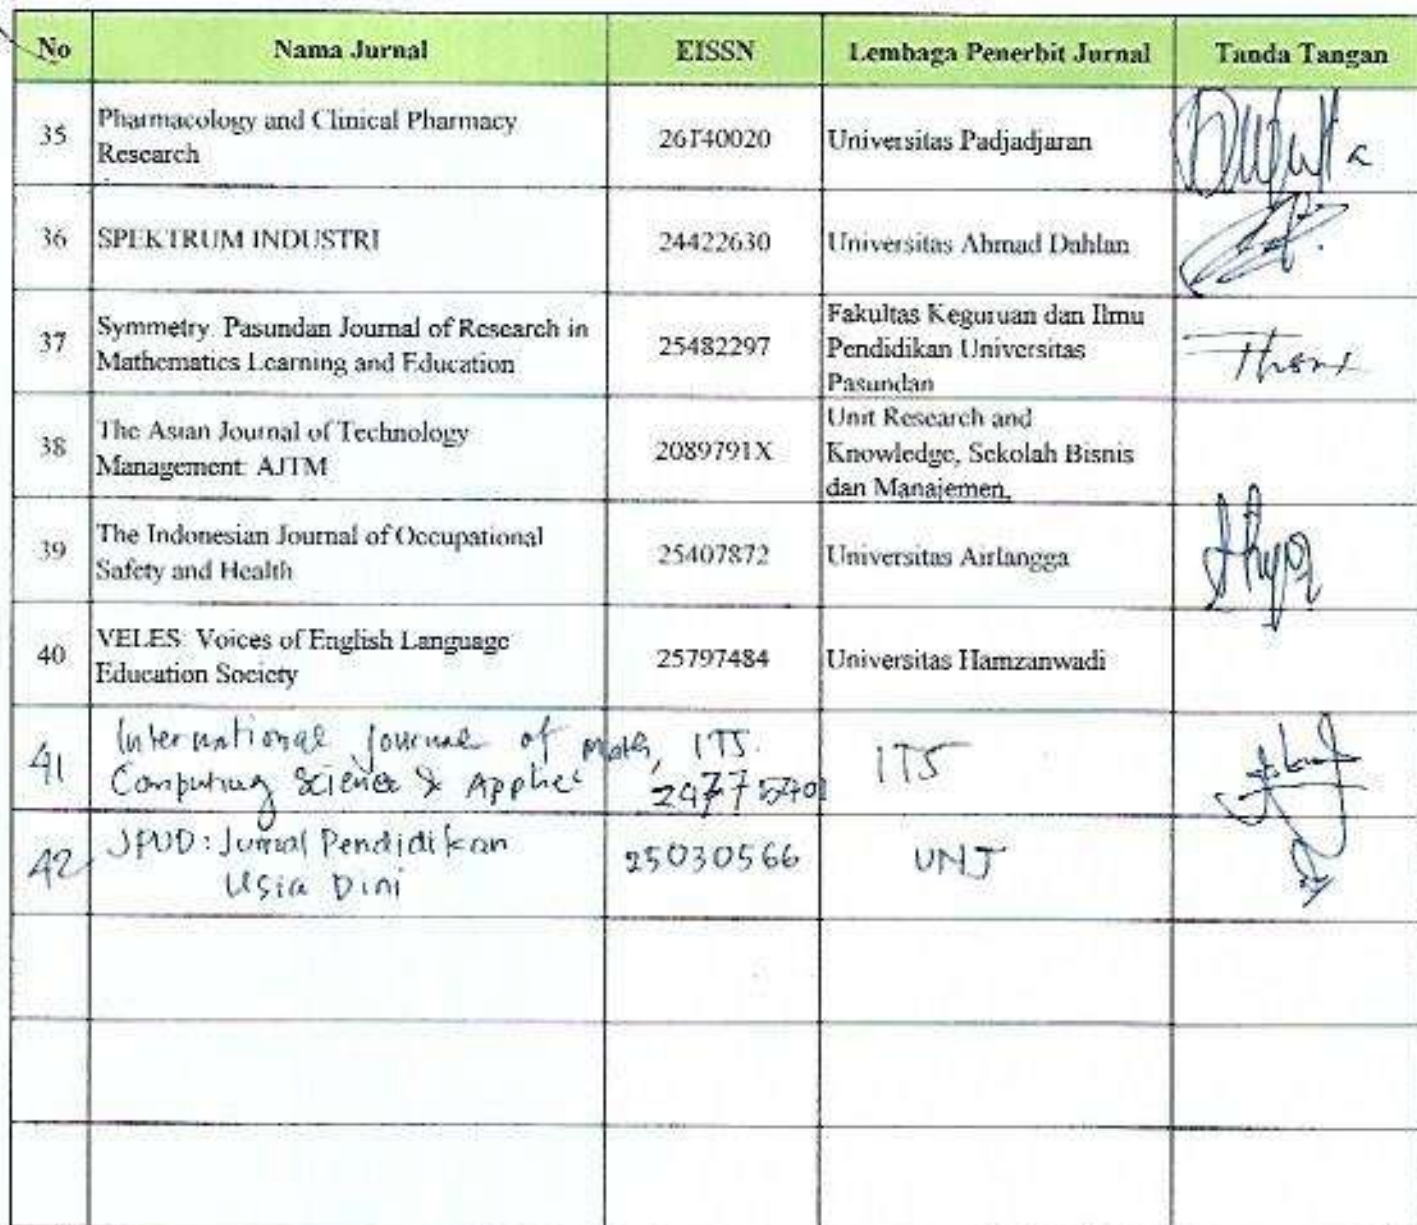 No Nama Jurnal EISSN Lembaga Penerbit Jurnal Tanda Tangan
35 Pharmacology and Clinical Pharmacy
Research 26140020 Universitas Padjadjaran
36 SPEKTRUM INDUSTRI 24422630 Universitas Ahmad Dahlan
37 Symmetry: Pasundan Journal of Research in
Mathematics Learning and Education 25482297 Fakultas Keguruan dan Ilmu
Pendidikan Universitas
Pasundan
38 The Asian Journal of Technology
Management: AJTM 2089791X Unit Research and
Knowledge, Sekolah Bisnis
dan Manajemen,
39 The Indonesian Journal of Occupational
Safety and Health 25407872 Universitas Airlangga
40 VELES: Voices of English Language
Education Society 25797484 Universitas Hamzanwadi
41 International Journal of Math, ITS.
Computing Science & Applied 24775401 ITS
42 JPUD: Jurnal Pendidikan
Usia Dini 25030566 UNJ